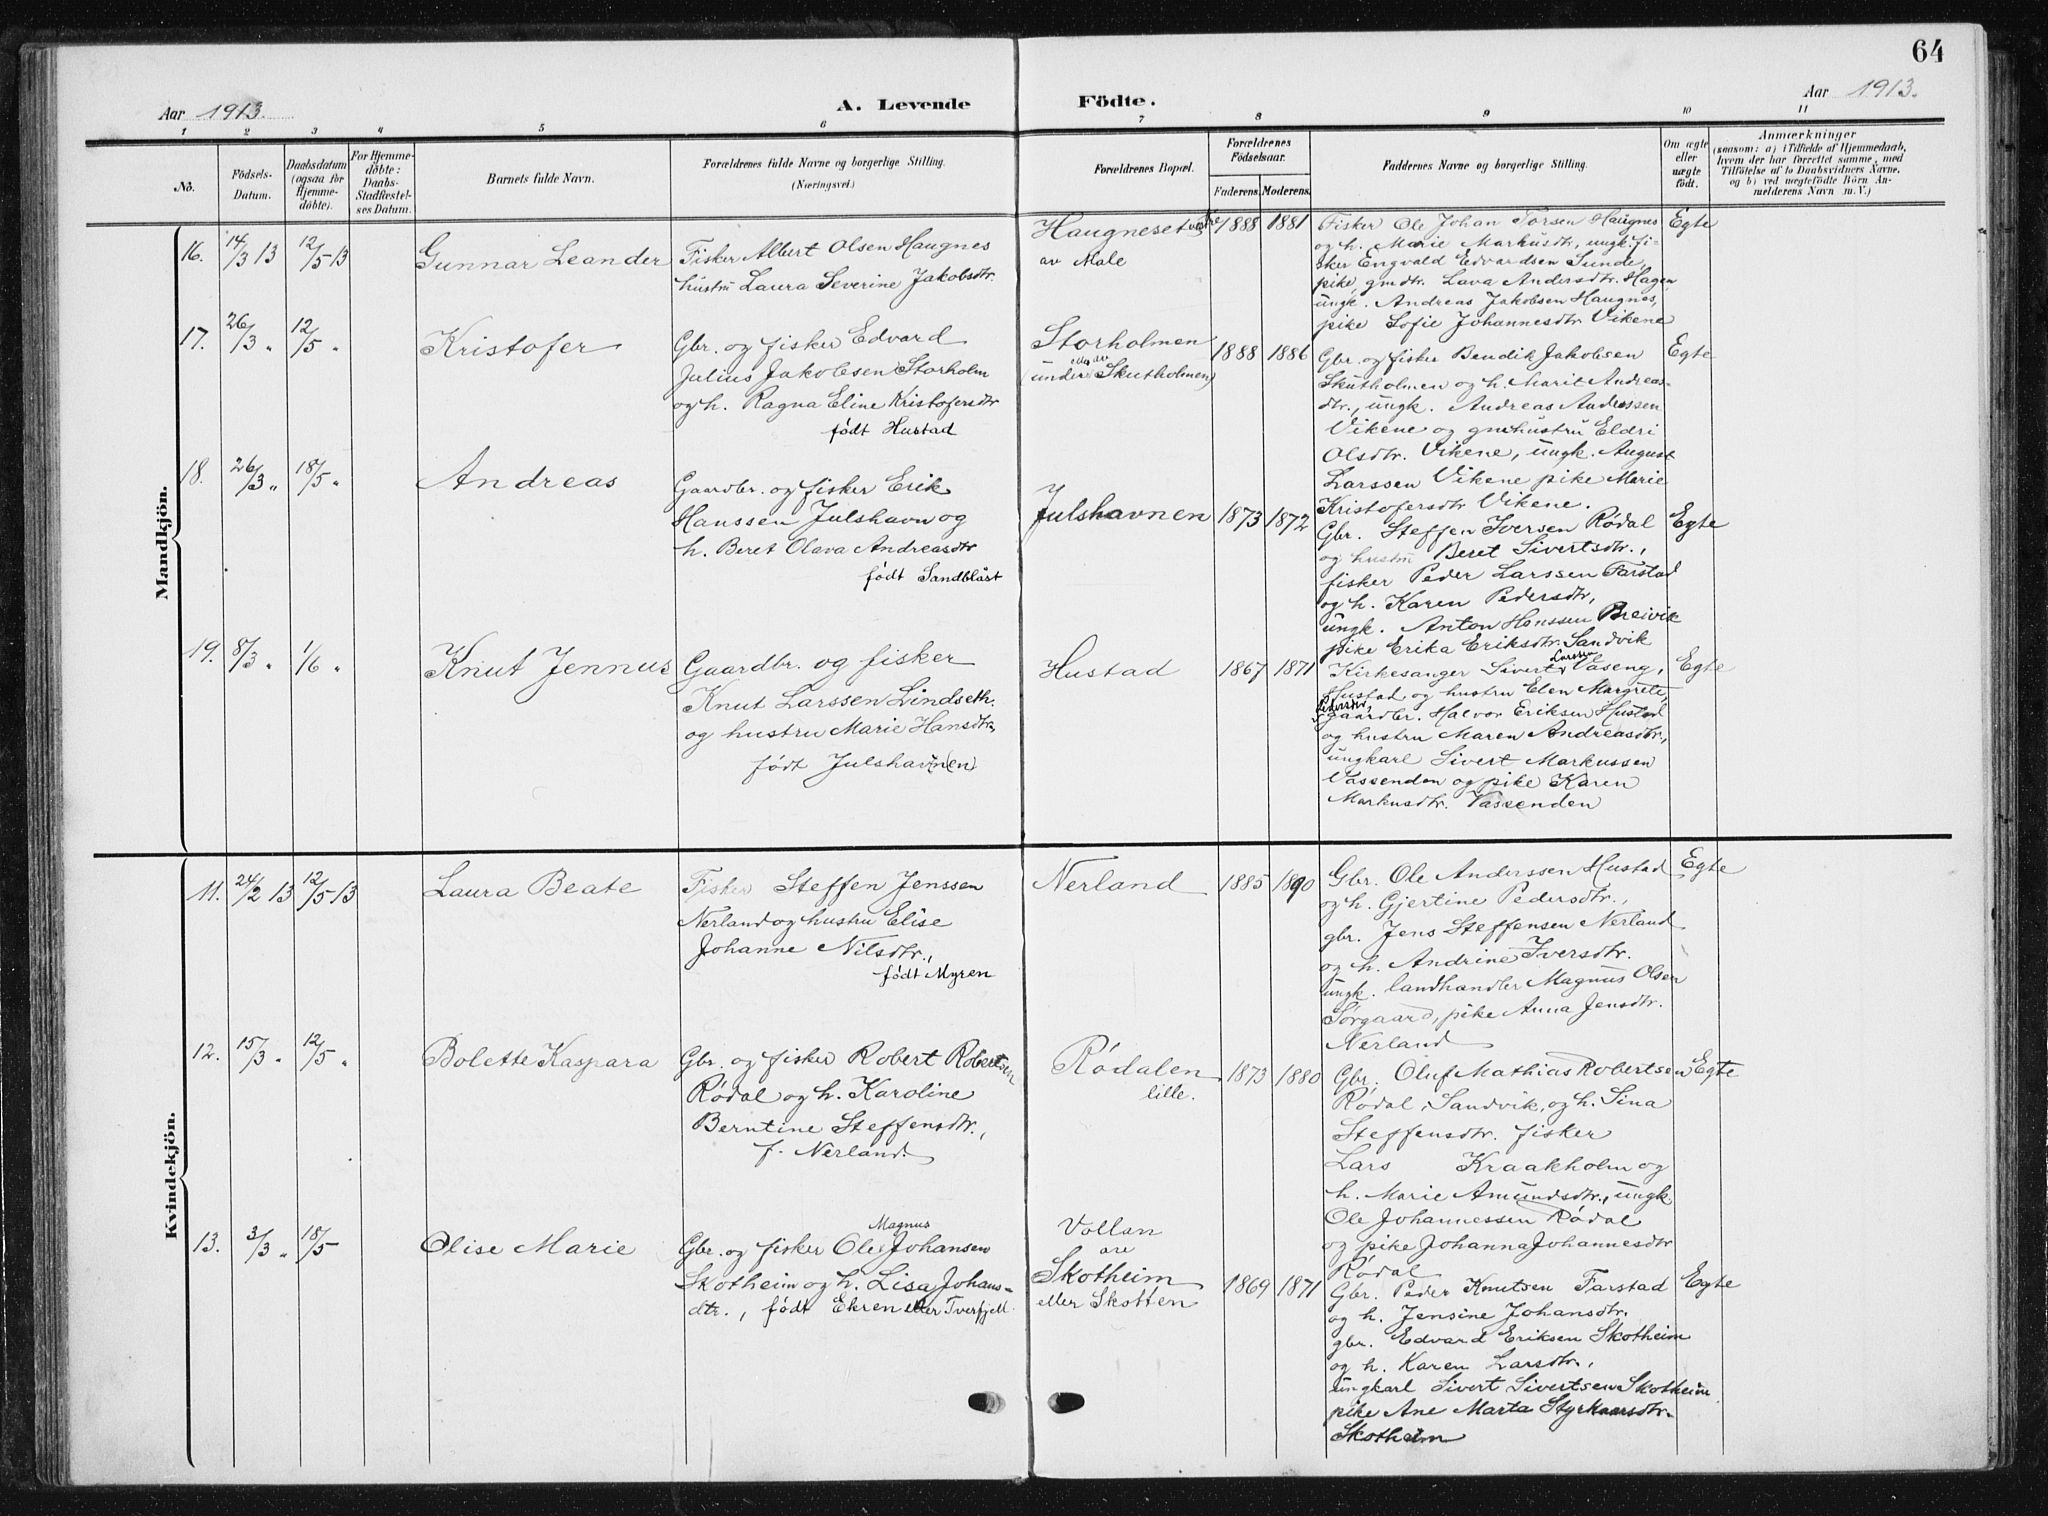 64
Aar 1913.
A. Levende
Födte.
Aar 1913.
1 2 3 4 5 6 7 8 9 10 11
No.
Födsels-
Datum.
Daabsdatum
(ogsaa for
Hjemme-
döbte).
For Hjemme-
döbte:
Daabs-
Stadfæstel-
ses Datum.
Barnets fulde Navn.
Forældrenes fulde Navne og borgerlige Stilling.
(Næringsvei.)
Forældrenes Bopæl.
Forældrenes
Födselsaar.
Faderens. Moderens.
Faddernes Navne og borgerlige Stilling.
Om ægte
eller
uægte
født.
Anmærkninger
(saasom: a) i Tilfælde af Hjemmedaab,
hvem der har forrettet samme, med
Tilföielse af to Daabsvidners Navne,
og b) ved uægtefödte Börn An-
melderens Navn m. V.)
Mandkjön.
16. 14/3 13 12/5 13
Gunnar Leander
Fisker Albert Olsen Haugnes
hustru Laura Severine Jakobsdtr.
Haugneset vestre
av Male
1888 1881
Fisker Ole Johan Torsen Haugnes
og h. Marie Markusdtr, ungk. fi-
sker Engvald Edvardsen Sunde,
pike, gmdtr. Lava Andersdtr. Hagen
ungk. Andreas Jakobsen Haugnes,
pike Sofie Johannesdtr Vikene
Egte
17. 26/3 „ 12/5 „
Kristofer
Gbr. og fisker Edvard
Julius Jakobsen Storholm
og h. Ragna Eline Kristofersdtr
født Hustad
Storholmen
(under Skutholmen)
1888 1886
Gbr. og fisker Bendik Jakobsen
Skutholmen og h. Marit Andreas-
dtr., ungk. Andreas Andressen
Vikene og gmhustru Eldri
Olsdtr. Vikene, ungk. August
Larssen Vikene pike Marie
Kristofersdtr Vikene.
Egte
18. 26/3 „ 18/5 „
Andreas
Gaardbr. og fisker Erik
Hanssen Julshavn og
h. Beret Olava Andreasdtr
født Sandbläst
Julshavnen
1873 1872
Gbr. Steffen Iversen Rødal
og hustru Beret Sivertsdtr.,
fisker Peder Larssen Farstad
og h. Karen Pedersdtr,
ungk. Anton Hanssen Breivik
pike Erika Eriksdtr. Sandvik
Egte
19. 8/3 „ 1/6 „
Knut Jennus
Gaardbr. og fisker
Knut Larssen Lindseth.
og hustru Marie Hansdtr,
født Julshavn(en)
Hustad
1867 1871
Kirkesanger Sivert Larssen Vaseng,
Hustad og hustru Elen Margrete
Pedersdtr,
gaardbr. Halvor Eriksen Hustad
og hustru Maren Andreasdtr.,
ungkarl Sivert Markussen
Vassenden og pike Karen
Markusdtr. Vassenden
Egte
Kvindekjön.
11. 24/2 13 12/5 13
Laura Beate
Fisker Steffen Jenssen
Nerland og hustru Elise
Johanne Nilsdtr.,
født Myren
Nerland
1885 1890
Gbr. Ole Anderssen Hustad
og h. Gjertine Pedersdtr.,
gbr. Jens Steffensen Nerland
og h. Andrine Iversdtr.
ungk. landhandler Magnus Olsen
Sørgaard, pike Anna Jensdtr.
Nerland
Egte
12. 15/3 „ 12/5 „
Bolette Kaspara
Gbr. og fisker Robert Robertsen
Rødal og h. Karoline
Berntine Steffensdtr.,
f. Nerland.
Rødalen
lille.
1873 1880
Gbr. Oluf Mathias Robertsen
Rødal, Sandvik, og h. Sina
Steffensdtr. fisker
Lars Kraakholm og
h. Marie Amundsdtr., ungk.
Ole Johannessen Rødal
og pike Johanna Johannesdtr
Rødal
Egte
13. 3/3 „ 18/5
Olise Marie
Gbr. og fisker Ole Magnus Johansen
Skotheim og h. Lisa Johans-
dtr., født Ekren eller Tverfjell.
Vollan
Skotheim
eller Skotten
1869 1871
Gbr. Peder Knutsen Farstad
og h. Jensine Johansdtr.
gbr. Edvard Eriksen Skotheim
og h. Karen Larsdtr.,
ungkarl Sivert Sivertsen Skotheim
pike Ane Marta Styrkaarsdtr.
Skotheim
Egte